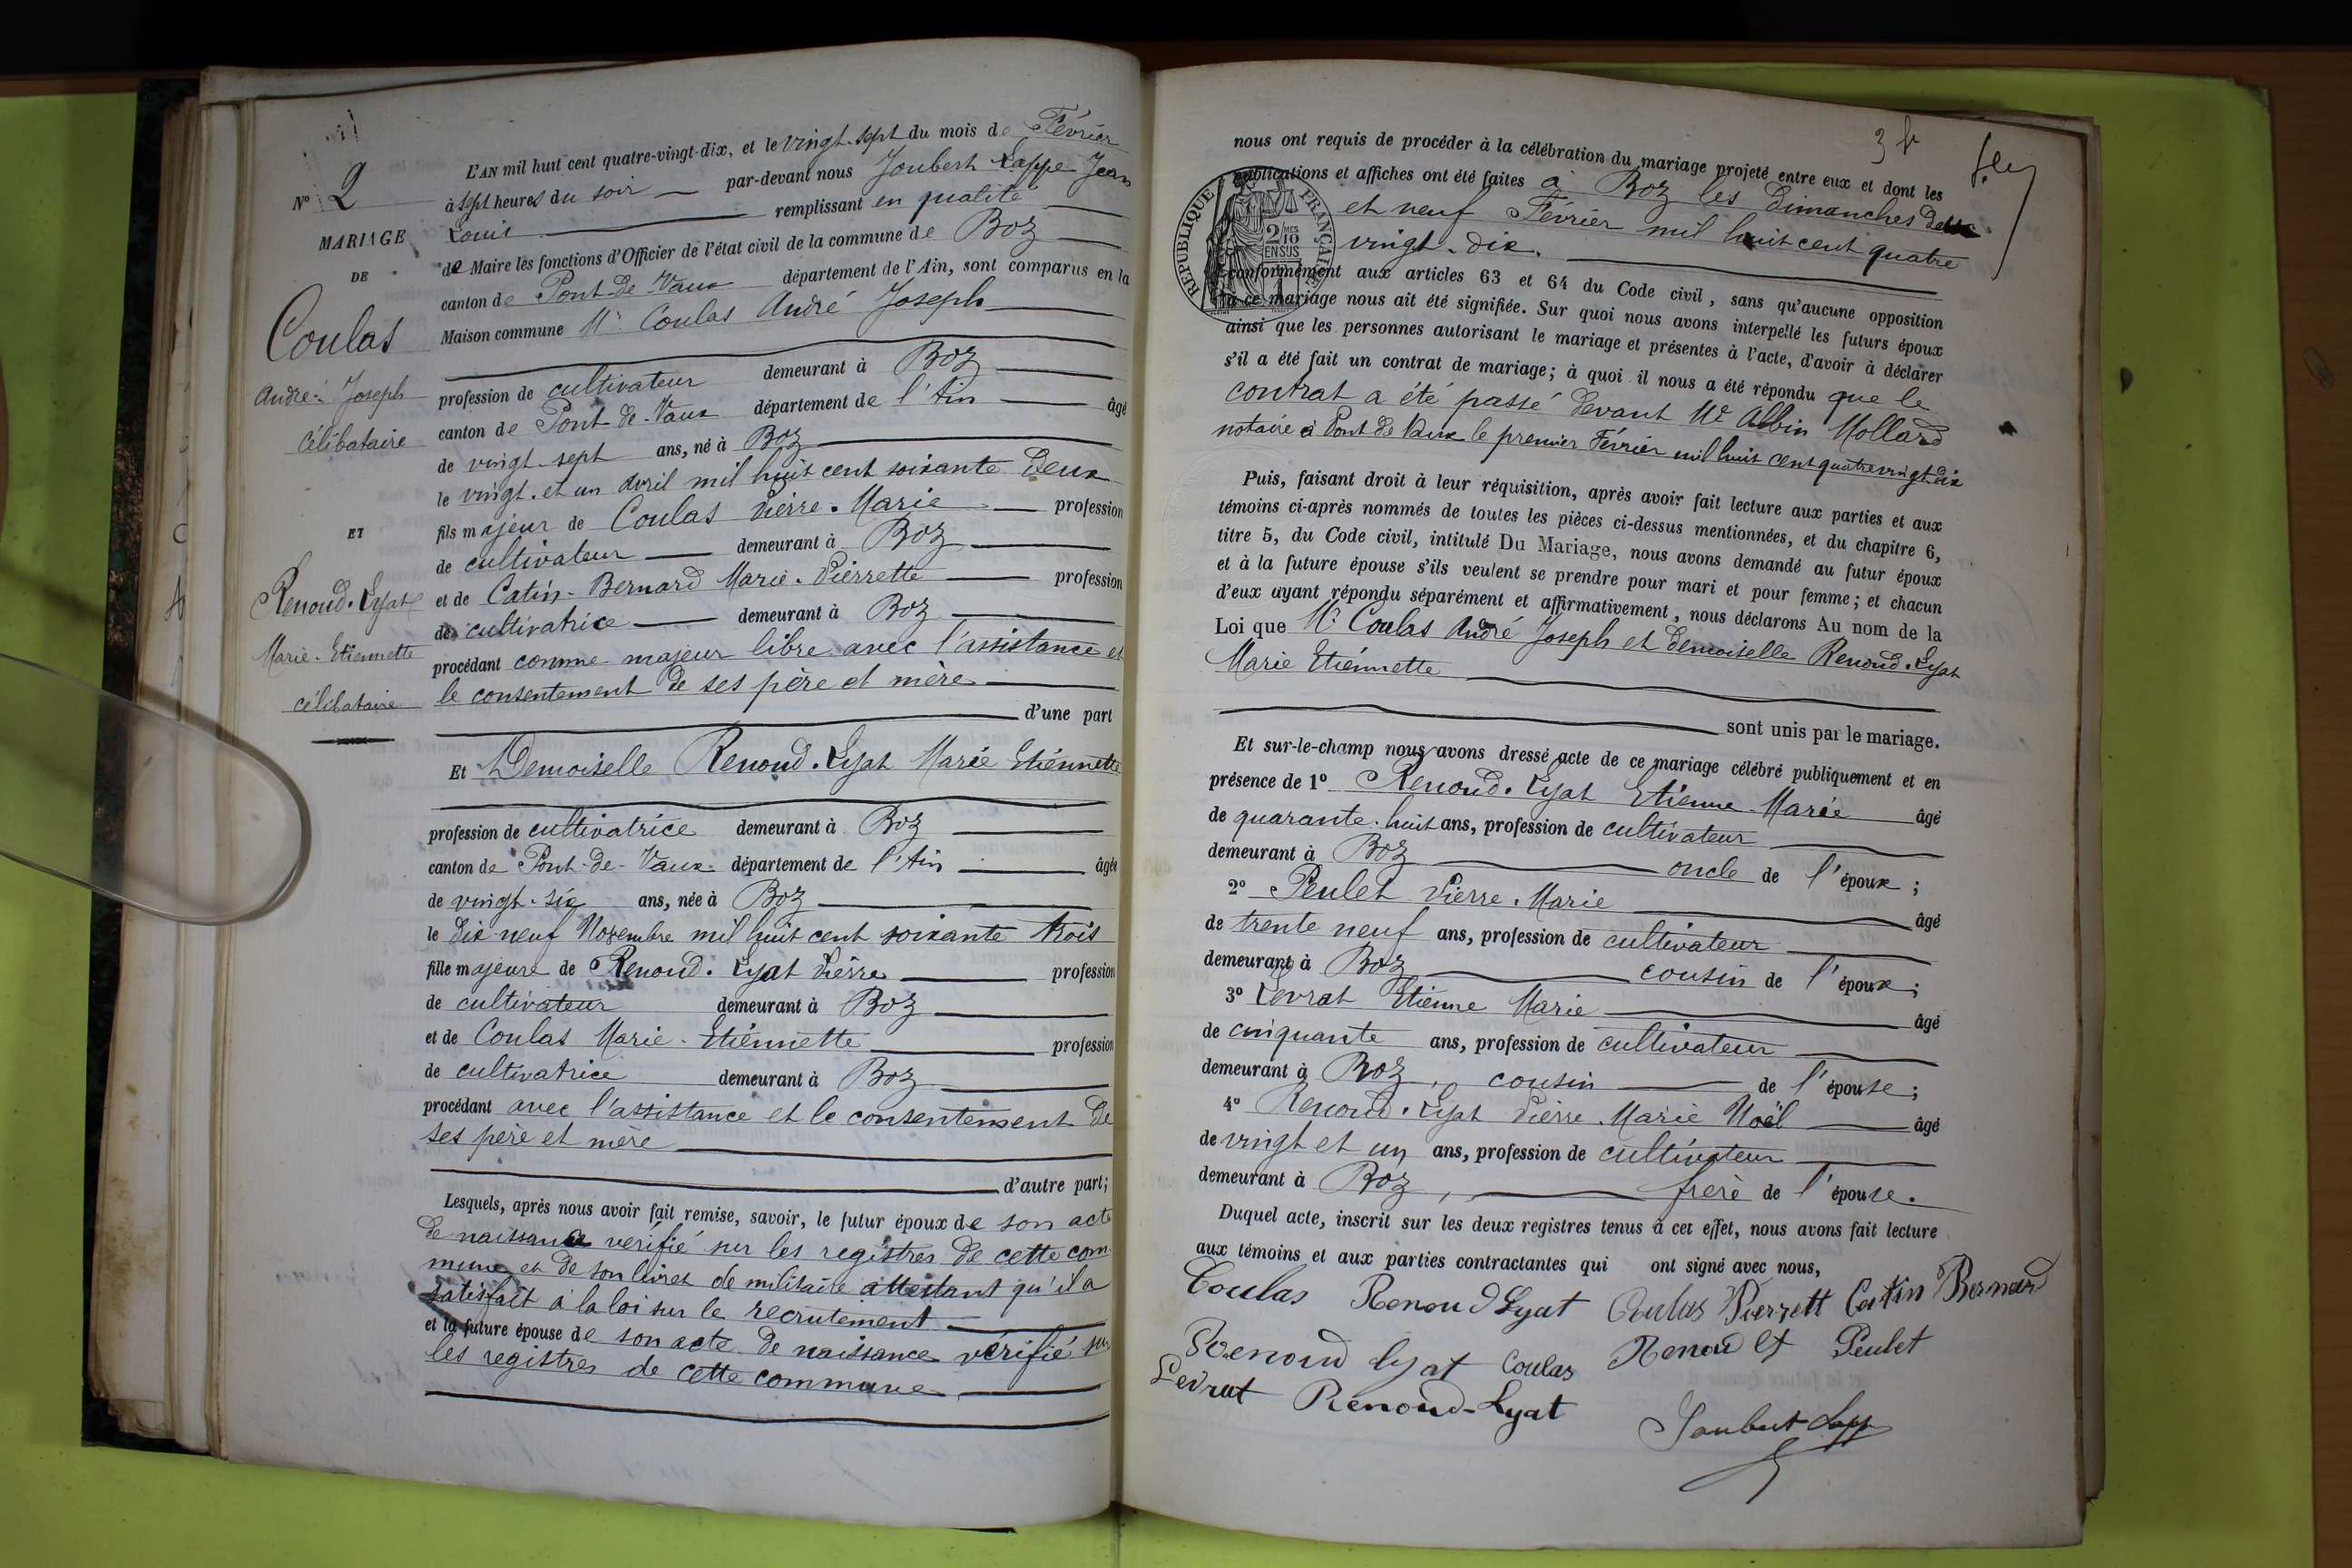 L'AN mil huit cent quatre-vingt-dix, et le vingt-sept du mois de Février
à sept heures du soir par-devant nous Joubert Lappe Jean
Louis remplissant en qualité
de Maire les fonctions d'Officier de l'état civil de la commune de Boz
canton de Pont-de-Vaux département de l'Ain, sont comparus en la
Maison commune Mr Coulas André Joseph
profession de cultivateur demeurant à Boz
canton de Pont-de-Vaux département de l'Ain âgé
de vingt-sept ans, né à Boz
le vingt-et un avril mil huit cent soixante deux
fils majeur de Coulas Pierre-Marie profession
de cultivateur demeurant à Boz
et de Catin-Bernard Marie-Pierrette profession
de cultivatrice demeurant à Boz
procédant comme majeur libre avec l'assistance et
le consentement de ses père et mère
d'une part
Et Demoiselle Renoud-Lyat Marie Etiennette
profession de cultivatrice demeurant à Boz
canton de Pont-de-Vaux département de l'Ain âgée
de vingt-six ans, née à Boz
le dix-neuf Novembre mil huit cent soixante trois
fille majeure de Renoud-Lyat Pierre profession
de cultivateur demeurant à Boz
et de Coulas Marie-Etiennette profession
de cultivatrice demeurant à Boz
procédant avec l'assistance et le consentement de
ses père et mère
d'autre part;
Lesquels, après nous avoir fait remise, savoir, le futur époux de son acte
de naissance verifié sur les registres de cette com
mune et de son livret de militaire attestant qu'il a
satisfait à la loi sur le recrutement
et la future épouse de son acte de naissance vérifié sur
les registres de cette commune
No 2
MARIAGE
DE
Coulas
André-Joseph
célibataire
ET
Renoud-Lyat
Marie-Etiennette
célibataire
3 fr
nous ont requis de procéder à la célébration du mariage projeté entre eux et dont les
publications et affiches ont été faites à Boz les dimanches deux
et neuf Février mil huit cent quatre
vingt-dix.
REPUBLIQUE FRANÇAISE
2 MES
10
EN SUS
conformément aux articles 63 et 64 du Code civil, sans qu'aucune opposition
à ce mariage nous ait été signifiée. Sur quoi nous avons interpellé les futurs époux
ainsi que les personnes autorisant le mariage et présentes à l'acte, d'avoir à déclarer
s'il a été fait un contrat de mariage; à quoi il nous a été répondu que le
contrat a été passé devant Me Albin Mollard
notaire à Pont de Vaux le premier Février mil huit cent quatre vingt dix
Puis, faisant droit à leur réquisition, après avoir fait lecture aux parties et aux
témoins ci-après nommés de toutes les pièces ci-dessus mentionnées, et du chapitre 6,
titre 5, du Code civil, intitulé Du Mariage, nous avons demandé au futur époux
et à la future épouse s'ils veulent se prendre pour mari et pour femme; et chacun
d'eux ayant répondu séparément et affirmativement, nous déclarons Au nom de la
Loi que Mr Coulas André Joseph et demoiselle Renoud-Lyat
Marie Etiennette
sont unis par le mariage.
Et sur-le-champ nous avons dressé acte de ce mariage célébré publiquement et en
présence de 1° Renoud-Lyat Etienne-Marie âgé
de quarante-huit ans, profession de cultivateur
demeurant à Boz oncle de l'époux;
2° Peulet Pierre-Marie âgé
de trente neuf ans, profession de cultivateur
demeurant à Boz cousin de l'époux;
3° Levrat Etienne Marie âgé
de cinquante ans, profession de cultivateur
demeurant à Boz, cousin de l'épouse;
4° Renoud-Lyat Pierre-Marie Noël âgé
de vingt et un ans, profession de cultivateur
demeurant à Boz, frère de l'épouse.
Duquel acte, inscrit sur les deux registres tenus à cet effet, nous avons fait lecture
aux témoins et aux parties contractantes qui ont signé avec nous,
Coulas Renoud Lyat Coulas Pierrett Catin Bernard
Renoud lyat Coulas Renoud Peulet
Levrat Renoud-Lyat
Joubert Lapp